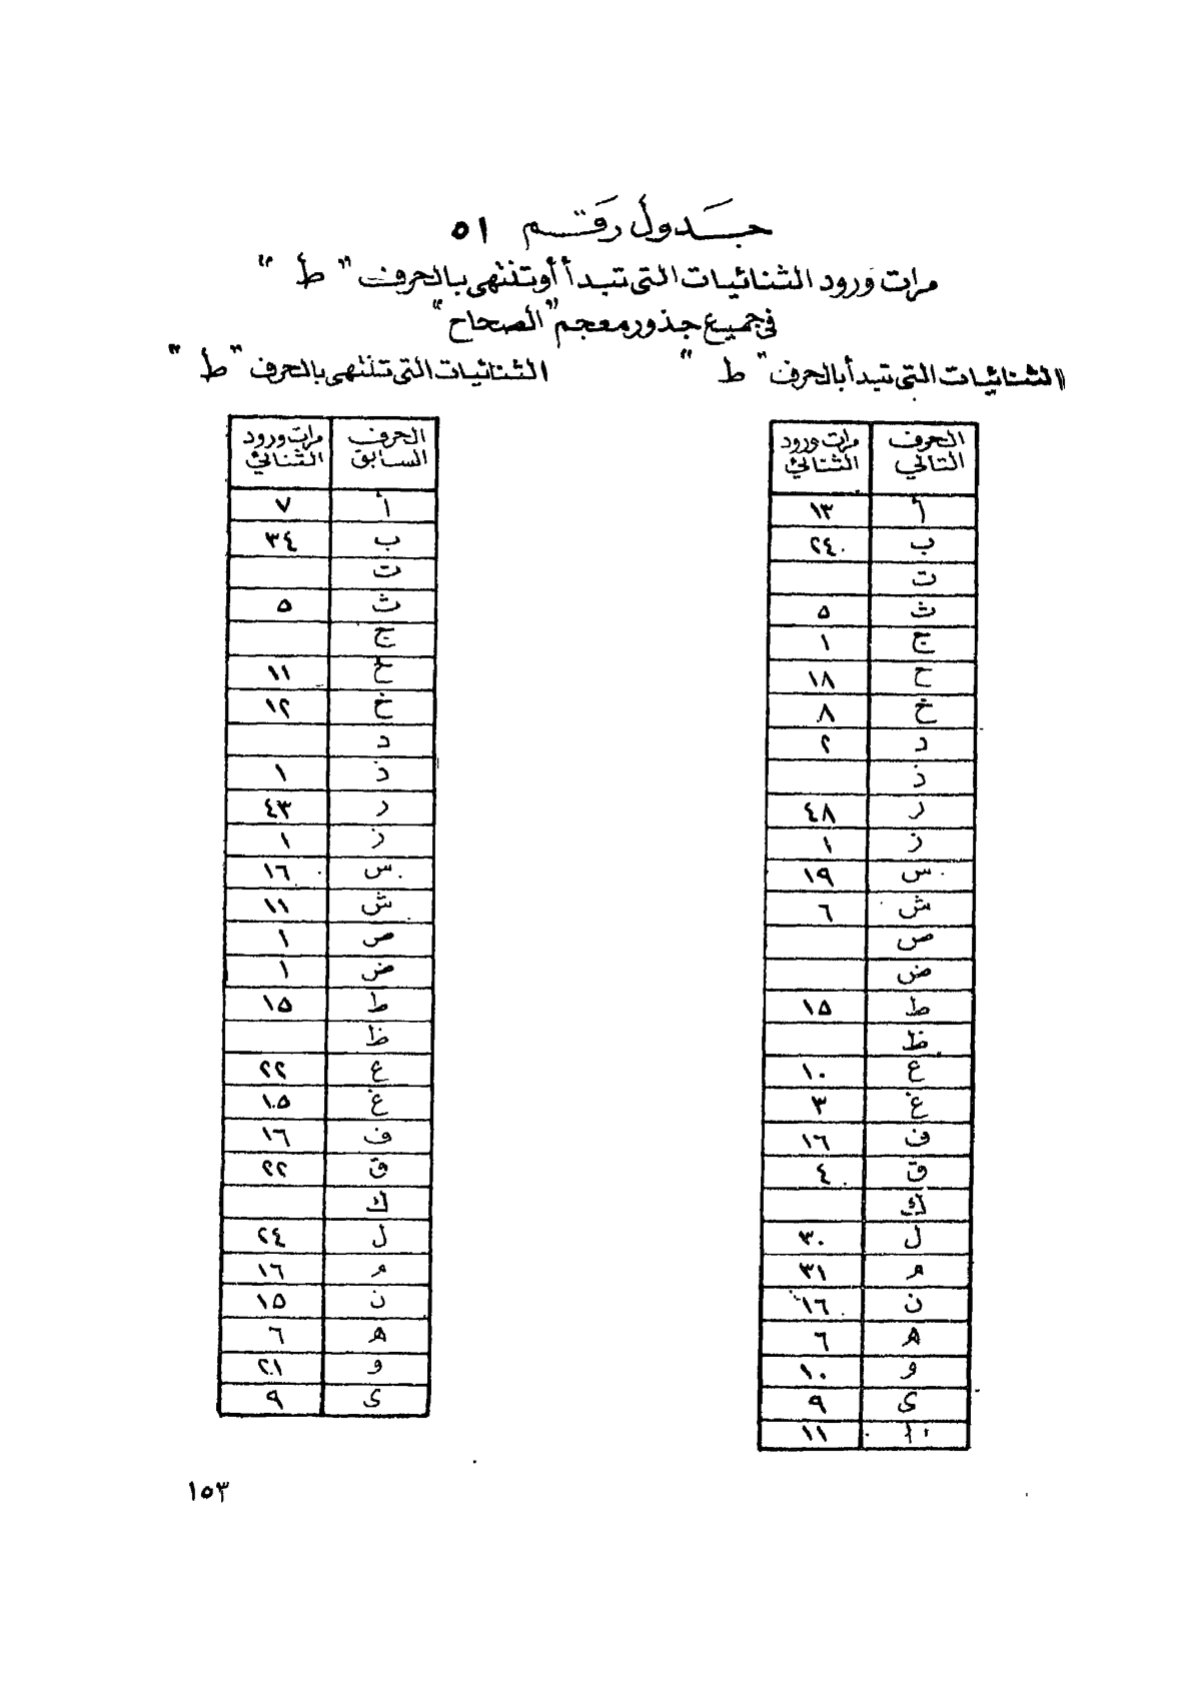 جدول رقم ٥١
مرات ورود الثنائيات التى تبدأ أو تنتهى بالحرف "ط"
فى جميع جذور معجم "الصحاح"
الثنائيات التى تبدأ بالحرف "ط"
الحرف التالي | مرات ورود الثنائي
أ | ١٣
ب | ٢٤
ت |
ث | ٥
ج | ١
ح | ١٨
خ | ٨
د | ٢
ذ |
ر | ٤٨
ز | ١
س | ١٩
ش | ٦
ص |
ض |
ط | ١٥
ظ |
ع | ١٠
غ | ٣
ف | ١٦
ق | ٤
ك |
ل | ٣٠
م | ٣١
ن | ١٦
ه | ٦
و | ١٠
ى | ٩
ا | ١١
الثنائيات التى تنتهى بالحرف "ط"
الحرف السابق | مرات ورود الثنائي
أ | ٧
ب | ٣٤
ت |
ث | ٥
ج |
ح | ١١
خ | ١٢
د |
ذ | ١
ر | ٤٣
ز | ١
س | ١٦
ش | ١١
ص | ١
ض | ١
ط | ١٥
ظ |
ع | ٢٢
غ | ١٥
ف | ١٦
ق | ٢٢
ك |
ل | ٢٤
م | ١٦
ن | ١٥
ه | ٦
و | ٢١
ى | ٩
١٥٣